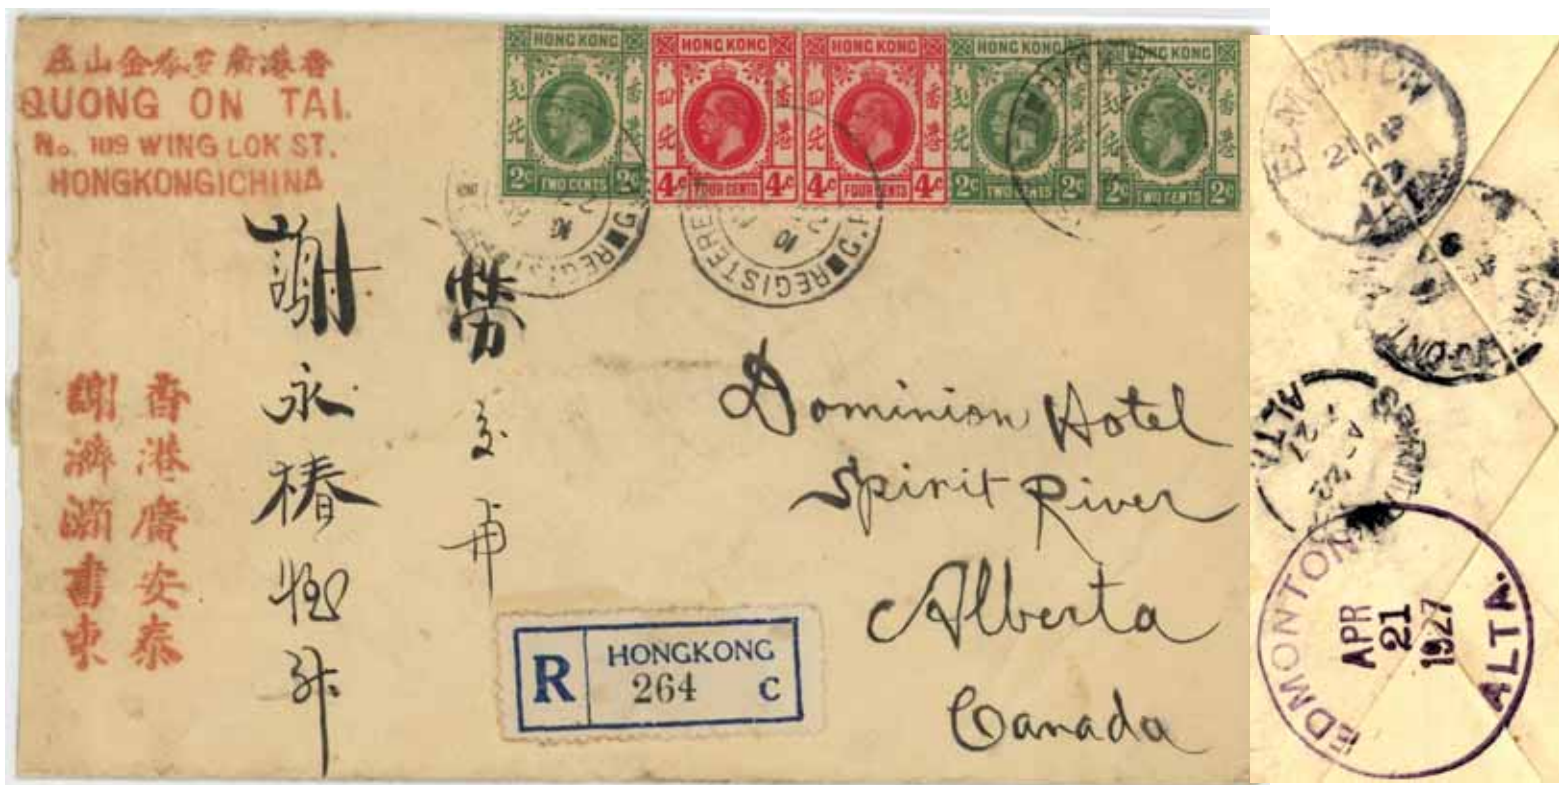 香港廣安泰金山庄
QUONG ON TAI.
No. 109 WING LOK ST.
HONGKONG CHINA
HONG KONG
香港
2c TWO CENTS 2c
HONG KONG
香港
4c FOUR CENTS 4c
HONG KONG
香港
4c FOUR CENTS 4c
HONG KONG
香港
2c TWO CENTS 2c
HONG KONG
香港
2c TWO CENTS 2c
REGISTERED G.P.
香港廣安泰
謝濟灝書柬
謝永椿
Dominion Hotel
Spirit River
Alberta
Canada
R HONGKONG
264 C
EDMONTON
21 AP
27
ALTA.
ALTA
EDMONTON
APR
21
1927
ALTA.